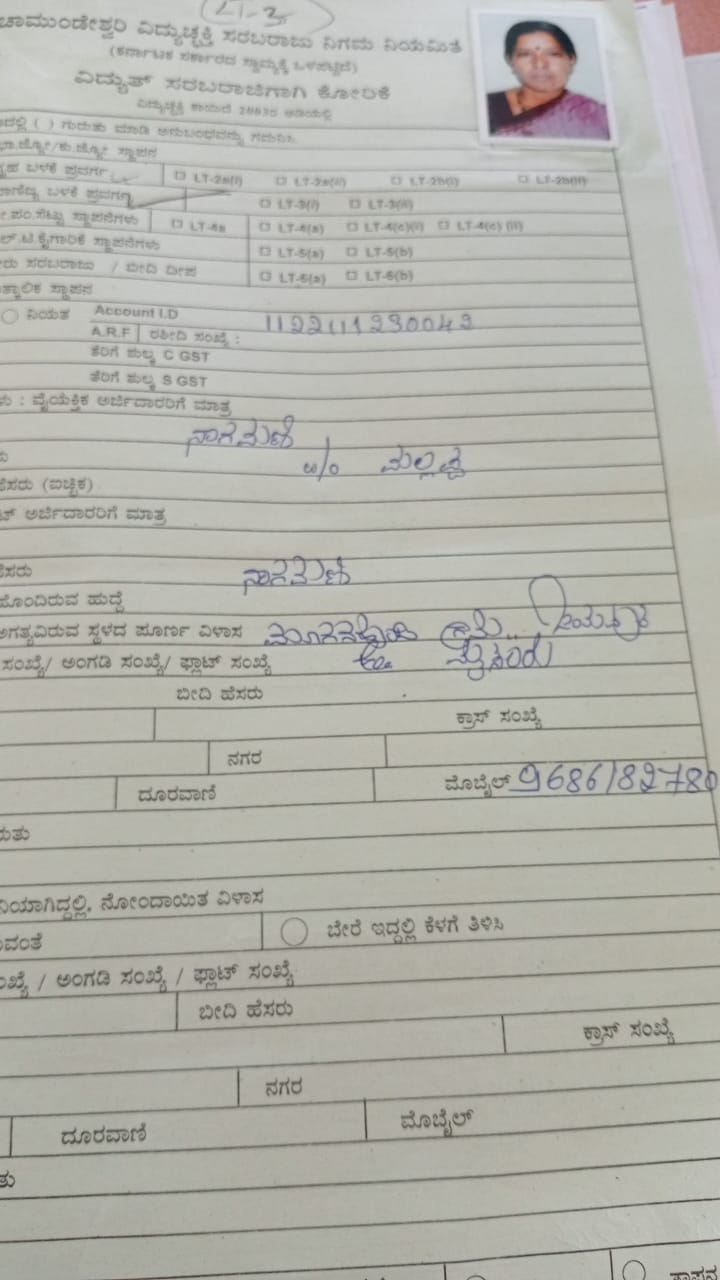 LT-3
ಚಾಮುಂಡೇಶ್ವರಿ ವಿದ್ಯುಚ್ಛಕ್ತಿ ಸರಬರಾಜು ನಿಗಮ ನಿಯಮಿತ
(ಕರ್ನಾಟಕ ಸರ್ಕಾರದ ಸ್ವಾಮ್ಯಕ್ಕೆ ಒಳಪಟ್ಟಿದೆ)
ವಿದ್ಯುತ್ ಸರಬರಾಜಿಗಾಗಿ ಕೋರಿಕೆ
ವಿದ್ಯುಚ್ಛಕ್ತಿ ಕಾಯಿದೆ 2003ರ ಅಡಿಯಲ್ಲಿ
( ) ಗುರುತು ಮಾಡಿ ಅನುಬಂಧವನ್ನು ಗಮನಿಸಿ
ಬಳಕೆ ಪ್ರವರ್ಗ LT-2a(i) LT-2a(ii) LT-2b(i) LT-2b(ii)
ಬಳಕೆ ಪ್ರವರ್ಗ LT-3(i) LT-3(ii)
ಪಂ.ಸೆಟ್ಟು ಸ್ಥಾಪನೆಗಳು LT-4a LT-4(a) LT-4(c)(i) LT-4(c) (ii)
ಕೈಗಾರಿಕೆ ಸ್ಥಾಪನೆಗಳು LT-5(a) LT-5(b)
ಸರಬರಾಜು / ಬೀದಿ ದೀಪ LT-6(a) LT-6(b)
ಸ್ಥಾಪನ
ನಿಯತ Account I.D
A.R.F ರಶೀದಿ ಸಂಖ್ಯೆ : 1122111230042
ತೆರಿಗೆ ಶುಲ್ಕ C GST
ತೆರಿಗೆ ಶುಲ್ಕ S GST
: ವೈಯಕ್ತಿಕ ಅರ್ಜಿದಾರರಿಗೆ ಮಾತ್ರ
ನಾಗಮಣಿ
w/o ಮಲ್ಲಪ್ಪ
(ಐಚ್ಛಿಕ)
ಅರ್ಜಿದಾರರಿಗೆ ಮಾತ್ರ
ನಾಗಮಣಿ
ಹೊಂದಿರುವ ಹುದ್ದೆ
ಅಗತ್ಯವಿರುವ ಸ್ಥಳದ ಪೂರ್ಣ ವಿಳಾಸ
ಸಂಖ್ಯೆ/ ಅಂಗಡಿ ಸಂಖ್ಯೆ/ ಫ್ಲಾಟ್ ಸಂಖ್ಯೆ ಮೈಸೂರು
ಬೀದಿ ಹೆಸರು
ಕ್ರಾಸ್ ಸಂಖ್ಯೆ
ನಗರ
ದೂರವಾಣಿ ಮೊಬೈಲ್ 9686182780
ನೋಂದಾಯಿತ ವಿಳಾಸ
ಬೇರೆ ಇದ್ದಲ್ಲಿ ಕೆಳಗೆ ತಿಳಿಸಿ
/ ಅಂಗಡಿ ಸಂಖ್ಯೆ / ಫ್ಲಾಟ್ ಸಂಖ್ಯೆ
ಬೀದಿ ಹೆಸರು
ಕ್ರಾಸ್ ಸಂಖ್ಯೆ
ನಗರ
ದೂರವಾಣಿ ಮೊಬೈಲ್